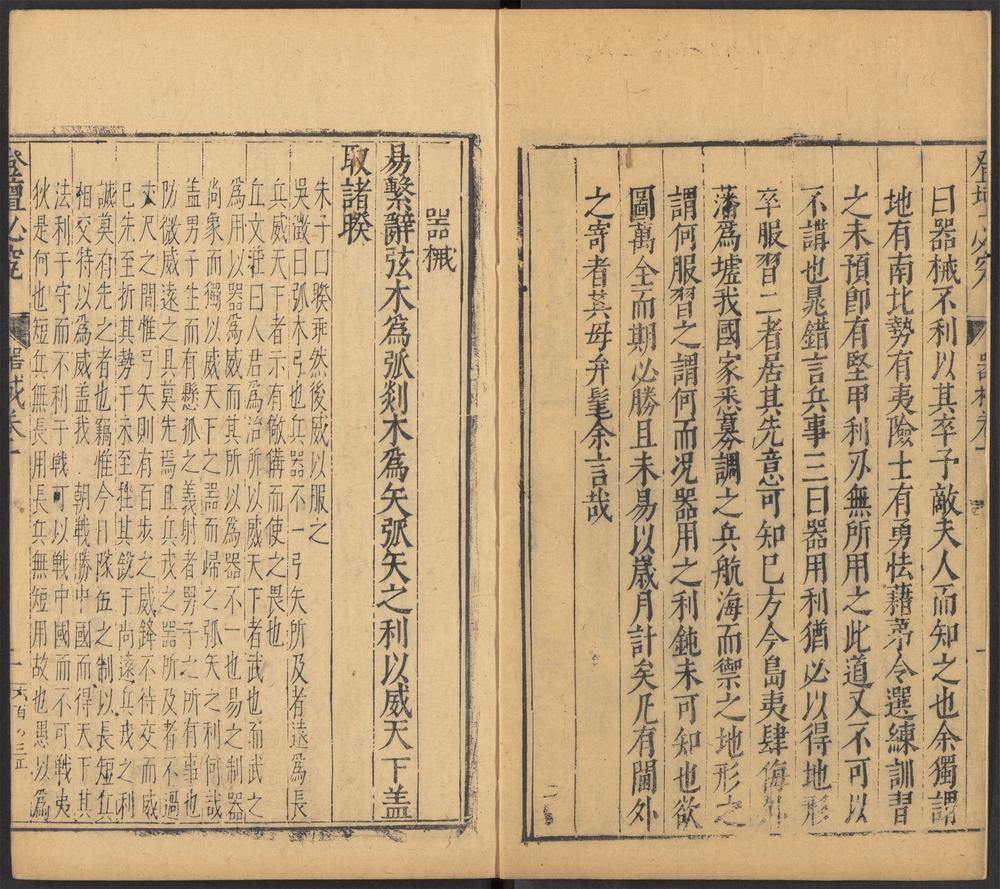 曰器械不利以其卒予敵夫人而知之也余獨謂
地有南北勢有夷險士有勇怯藉第令選練訓習
之未預卽有堅甲利刃無所用之此道又不可以
不講也晁錯言兵事三曰器用利猶必以得地形
卒服習二者居其先意可知已方今島夷肆侮外
藩爲墟我國家悉募調之兵航海而禦之地形之
謂何服習之謂何而況器用之利鈍未可知也欲
圖萬全而期必勝且未易以歲月計矣凡有閫外
之寄者其毋弁髦余言哉
二
器械
易繫辭弦木爲弧剡木爲矢弧矢之利以威天下蓋
取諸睽
朱子曰睽乖然後威以服之
吳澂曰弧木弓也兵器不一弓矢所及者遠爲長
兵威天下者示有儆備而使之畏也
丘文莊曰人君爲治所以威天下者武也而武之
爲用以器爲威而其所以爲器不一也易之制器
尚象而獨以威天下之器而歸之弧矢之利何哉
蓋男子生而有懸弧之義射者男子之所有事也
防微威遠之具莫先焉且兵戎之器所及者不過
丈尺之間惟弓矢則有百步之威鋒不待交而威
已先至折其勢于未至挫其銳于尚遠兵戎之利
誠莫有先之者也竊惟今日隊伍之制以長短兵
相交特以爲威蓋我 朝戰勝中國而得天下其
法利于守而不利于戰可以戰中國而不可戰夷
狄是何也短兵無長用長兵無短用故也愚以爲
登壇必究 器械卷一 一